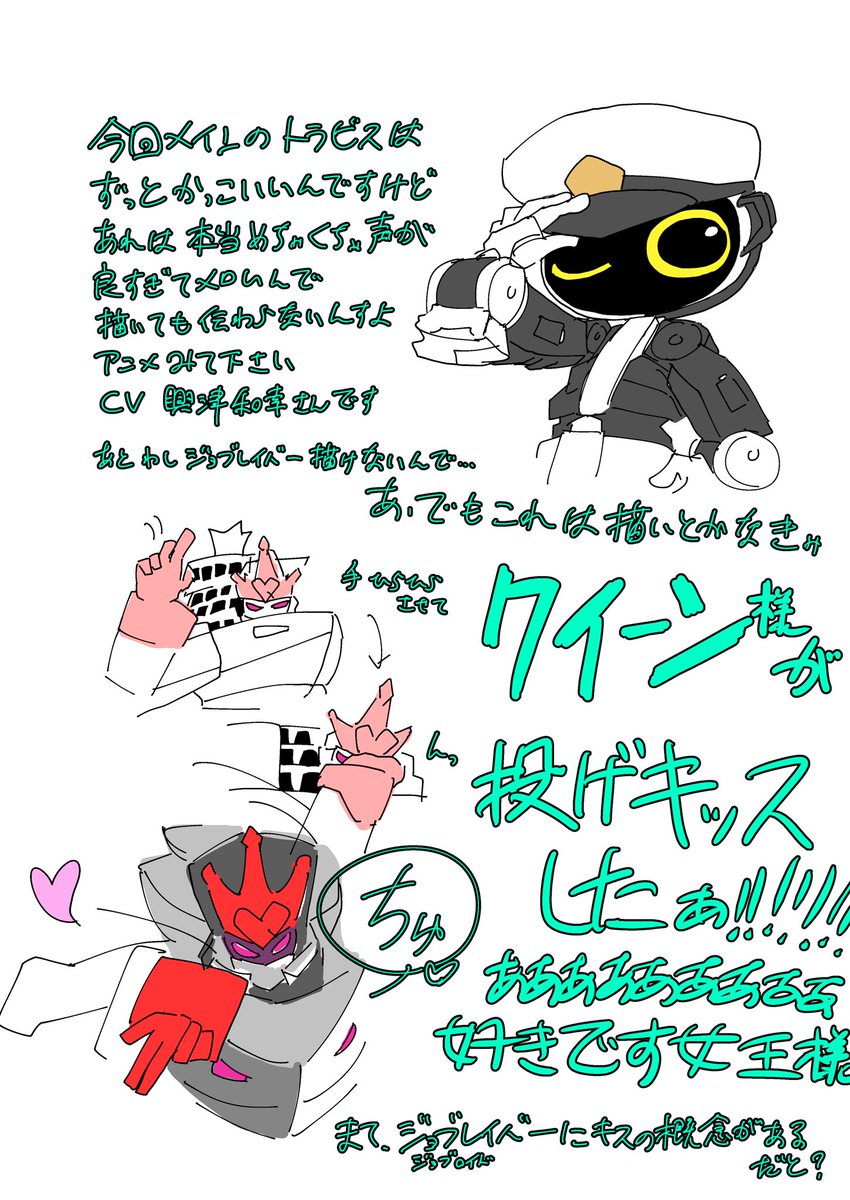 今回メインのトラビスは
ずっとかっこいいんですけど
あれは本当めちゃくちゃ声が
良すぎてメロいんで
描いても伝わらないんすよ
アニメみて下さい
CV 興津和幸さんです
あとわしジョブレイバー描けないんで…
あ、でもこれは描いとかなきゃ
手ひらひら
させて
クイーン様が
んっ
投げキッス
したぁ!!!!!!
ちゅ
ああああああああ
好きです女王様
まて、ジョブレイバーにキスの概念がある
ジョブロイド
だと?